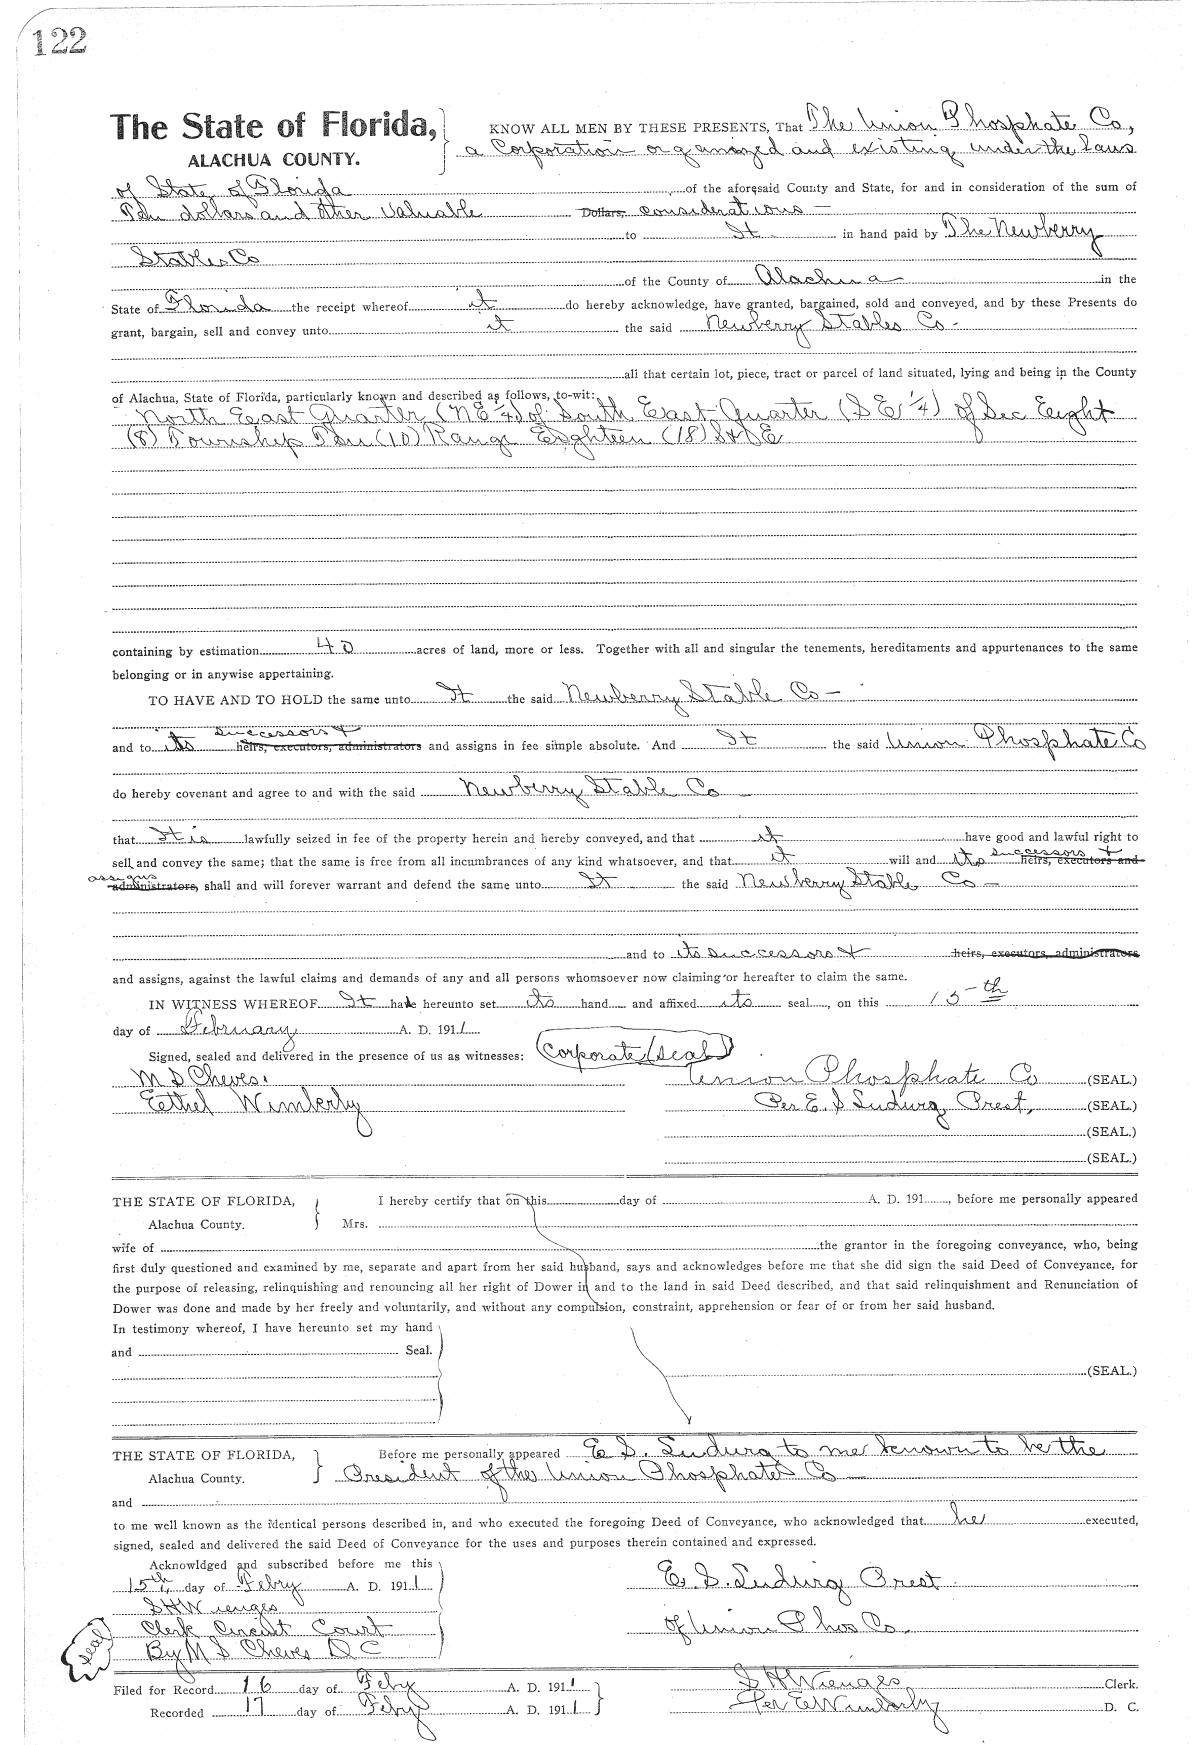 122
The State of Florida, KNOW ALL MEN BY THESE PRESENTS, That The Union Phosphate Co,
ALACHUA COUNTY. a Corporation organized and existing under the laws
of State of Florida of the aforesaid County and State, for and in consideration of the sum of
Ten dollars and other Valuable Dollars, considerations —
to It in hand paid by The Newberry
Stables Co
of the County of Alachua in the
State of Florida the receipt whereof it do hereby acknowledge, have granted, bargained, sold and conveyed, and by these Presents do
grant, bargain, sell and convey unto it the said Newberry Stables Co -
all that certain lot, piece, tract or parcel of land situated, lying and being in the County
of Alachua, State of Florida, particularly known and described as follows, to-wit:
North East Quarter (NE 1/4) of South East Quarter (SE 1/4) of Sec Eeight
(8) Township Ten (10) Range Eighteen (18) S&E
containing by estimation 40 acres of land, more or less. Together with all and singular the tenements, hereditaments and appurtenances to the same
belonging or in anywise appertaining.
TO HAVE AND TO HOLD the same unto It the said Newberry Stable Co —
successors &
and to its heirs, executors, administrators and assigns in fee simple absolute. And It the said Union Phosphate Co
do hereby covenant and agree to and with the said Newberry Stable Co —
that It is lawfully seized in fee of the property herein and hereby conveyed, and that it have good and lawful right to
sell and convey the same; that the same is free from all incumbrances of any kind whatsoever, and that it will and its successors & heirs, executors and
assigns administrators, shall and will forever warrant and defend the same unto It the said Newberry Stable Co —
and to its successors & heirs, executors, administrators
and assigns, against the lawful claims and demands of any and all persons whomsoever now claiming or hereafter to claim the same.
IN WITNESS WHEREOF It have hereunto set its hand and affixed its seal, on this 15-th
day of February A. D. 1911.
Signed, sealed and delivered in the presence of us as witnesses: Corporate (Seal)
M S Cheves. Union Phosphate Co (SEAL.)
Eethel Wimberly Per E. S Ludwig Prest, (SEAL.)
(SEAL.)
(SEAL.)
THE STATE OF FLORIDA, I hereby certify that on this day of A. D. 191, before me personally appeared
Alachua County. Mrs.
wife of the grantor in the foregoing conveyance, who, being
first duly questioned and examined by me, separate and apart from her said husband, says and acknowledges before me that she did sign the said Deed of Conveyance, for
the purpose of releasing, relinquishing and renouncing all her right of Dower in and to the land in said Deed described, and that said relinquishment and Renunciation of
Dower was done and made by her freely and voluntarily, and without any compulsion, constraint, apprehension or fear of or from her said husband.
In testimony whereof, I have hereunto set my hand
and Seal.
(SEAL.)
THE STATE OF FLORIDA, Before me personally appeared E S. Ludwig to me known to be the
Alachua County. President of the Union Phosphate Co —
and
to me well known as the identical persons described in, and who executed the foregoing Deed of Conveyance, who acknowledged that he executed,
signed, sealed and delivered the said Deed of Conveyance for the uses and purposes therein contained and expressed.
Acknowldged and subscribed before me this
15th day of Febry A. D. 1911 E. S. Ludwig Prest
S H Wienges
Clerk Circuit Court of Union Phos Co.
Seal By M S Cheves D C
Filed for Record 16 day of Feby A. D. 1911 S H Wienges Clerk.
Recorded 17 day of Feby A. D. 1911 Per E Wimberly D. C.